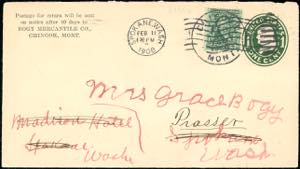 Postage for return will be sent
on notice after 10 days to
BOGY MERCANTILE CO.,
CHINOOK, MONT.
SPOKANE, WASH.
FEB 11
1908
MONT.
ONE CENT
Mrs Grace Bogy
Madison Hotel
Prosser
Spokane
Spokane
Wash
Wash